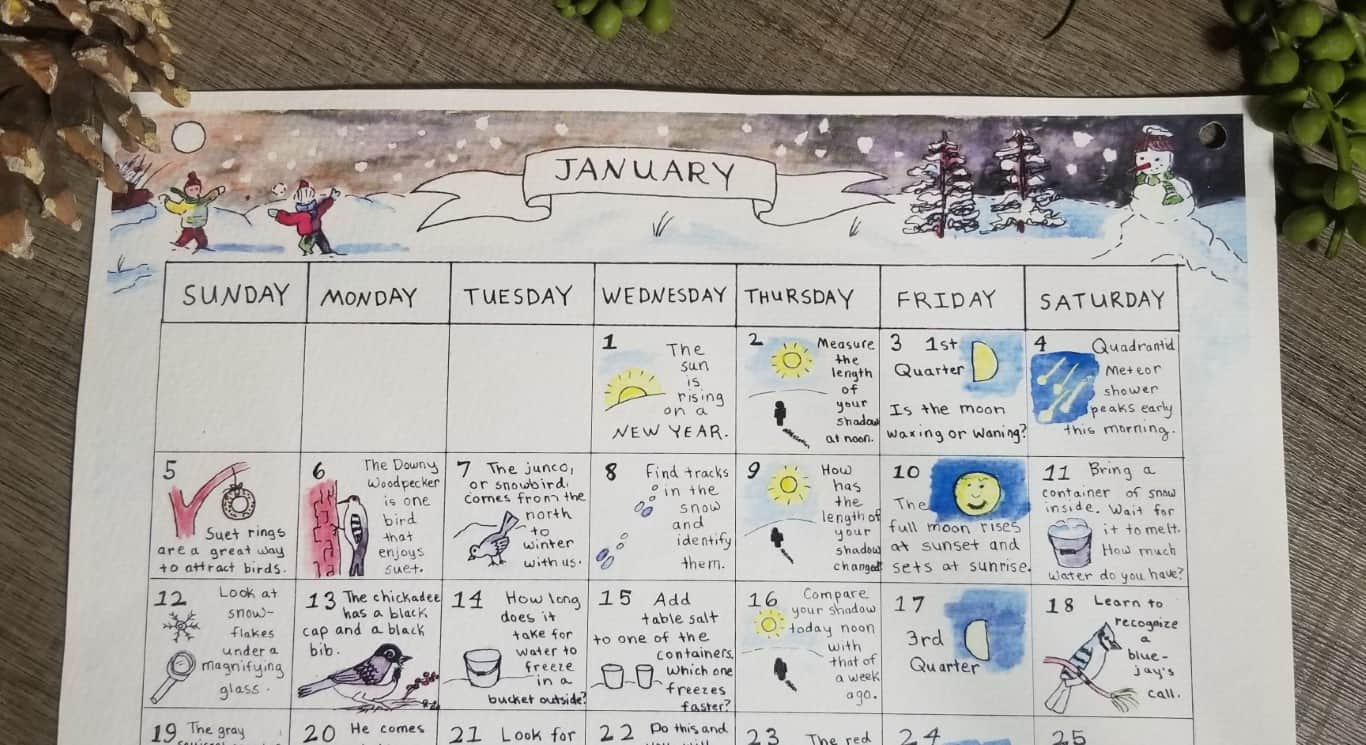 JANUARY
SUNDAY
MONDAY
TUESDAY
WEDNESDAY
THURSDAY
FRIDAY
SATURDAY
1
The
sun
is
rising
on a
NEW YEAR.
2
Measure
the
length
of
your
shadow
at noon.
3 1st
Quarter
Is the moon
waxing or waning?
4
Quadrantid
Meteor
shower
peaks early
this morning.
5
Suet rings
are a great way
to attract birds.
6
The Downy
Woodpecker
is one
bird
that
enjoys
suet.
7 The junco,
or snowbird,
comes from the
north
to
winter
with us.
8 Find tracks
in the
snow
and
identify
them.
9
How
has
the
length of
your
shadow
changed
10
The
full moon rises
at sunset and
sets at sunrise.
11 Bring a
container of snow
inside. Wait for
it to melt.
How much
water do you have?
12 Look at
snow-
flakes
under a
magnifying
glass.
13 The chickadee
has a black
cap and a black
bib.
14 How long
does it
take for
water to
freeze
in a
bucket outside?
15 Add
table salt
to one of the
containers.
Which one
freezes
faster?
16 Compare
your shadow
today noon
with
that of
a week
ago.
17
3rd
Quarter
18 Learn to
recognize
a
blue-
jay's
call.
19 The gray
20 He comes
21 Look for
22 Do this and
23 The red
24
25